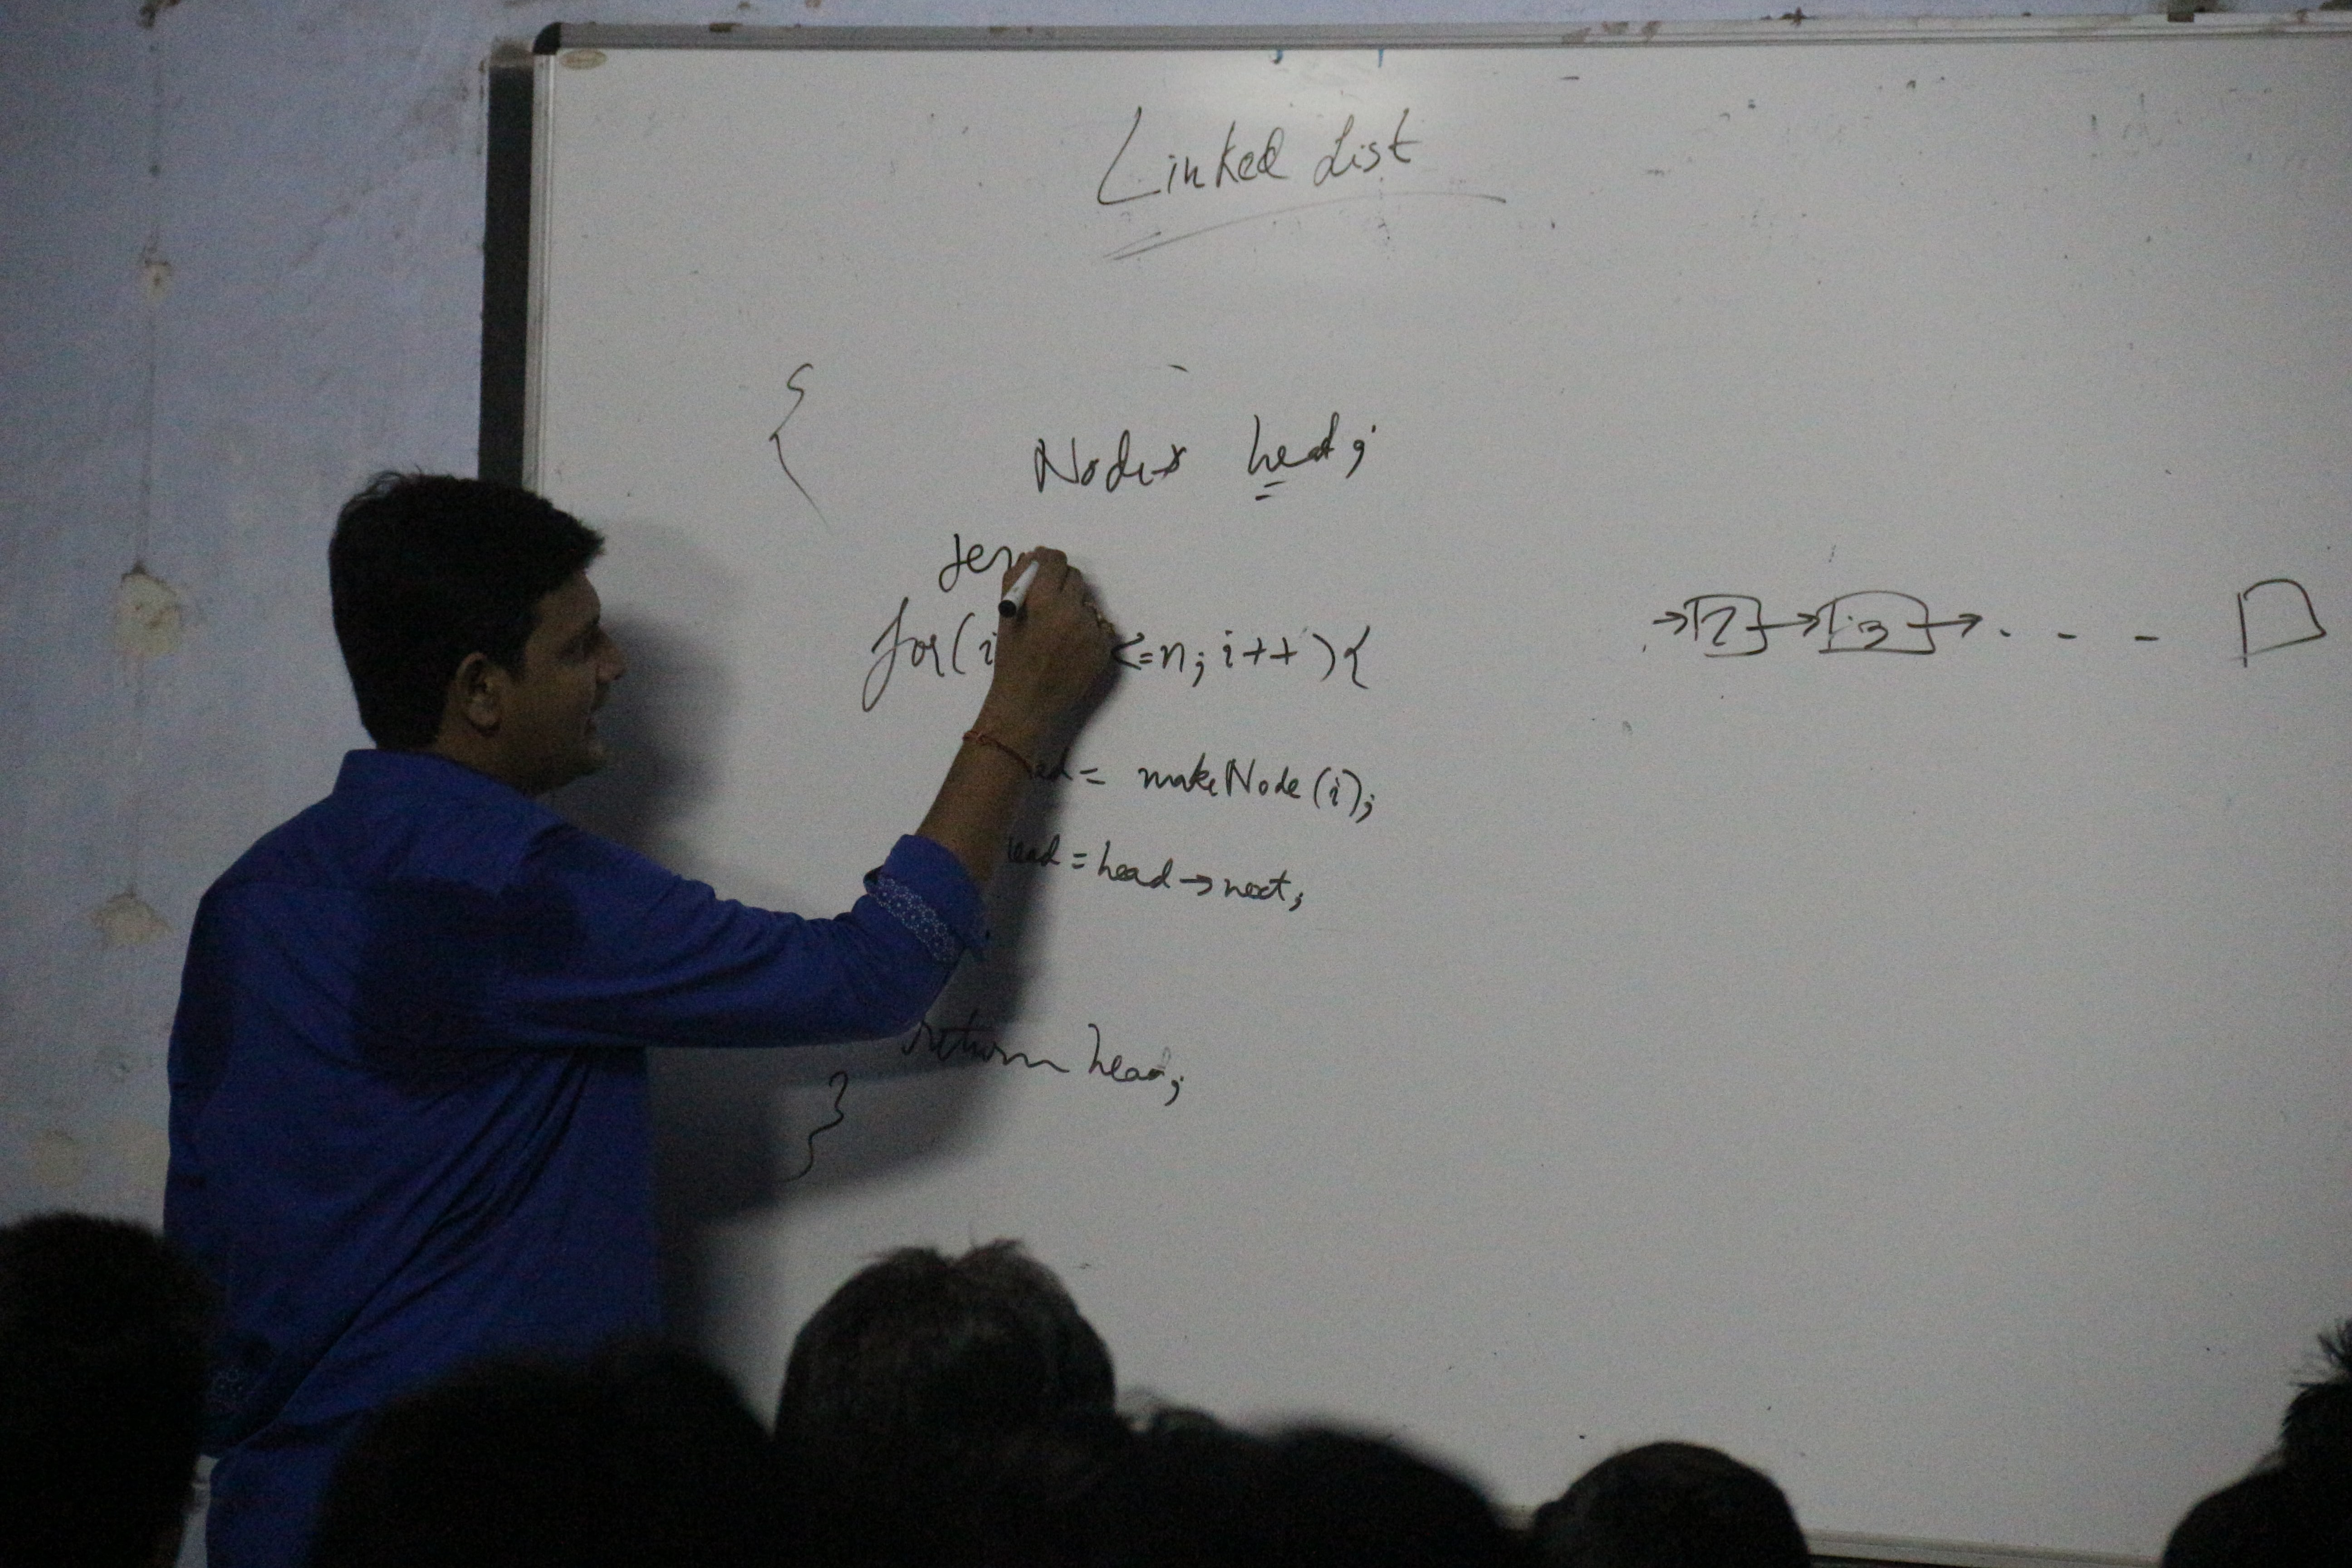 Linked List
{
Node* head;
tem
for(i <=n; i++){
→2→3→. - -
ead= makeNode(i);
head = head → next;
return head;
}